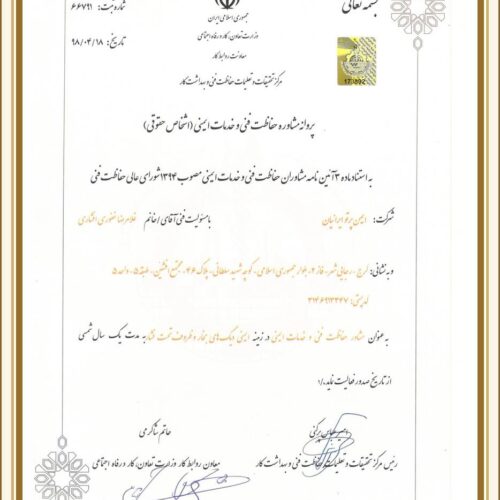 بسمه تعالی
جمهوری اسلامی ایران
وزارت تعاون، کار و رفاه اجتماعی
معاونت روابط کار
مرکز تحقیقات و تعلیمات حفاظت فنی و بهداشت کار
شماره ثبت: ۶۶۷۹۱
تاریخ: ۹۸/۰۴/۱۸
پروانه مشاوره حفاظت فنی و خدمات ایمنی (اشخاص حقوقی)
به استناد ماده ۳ آئین نامه مشاوران حفاظت فنی و خدمات ایمنی مصوب ۱۳۹۴ شورای عالی حفاظت فنی
شرکت: ایمن پرتو ایرانیان با مسئولیت فنی آقای / خانم غلامرضا غفوری افشاری
و به نشانی: کرج - رجایی شهر - فاز ۲ - بلوار جمهوری اسلامی - کوچه شهید سلطانی - پلاک ۴۶ - مجتمع افشین - طبقه ۵ - واحد ۵
کد پستی: ۳۱۴۶۹۱۳۳۴۷
به عنوان مشاور حفاظت فنی و خدمات ایمنی در زمینه ایمنی دیگ های بخار و ظروف تحت فشار به مدت یک سال شمسی
از تاریخ صدور فعالیت نماید./.
حاتم شاکرمی
رئیس مرکز تحقیقات و تعلیمات حفاظت فنی و بهداشت کار
معاون روابط کار وزارت تعاون، کار و رفاه اجتماعی